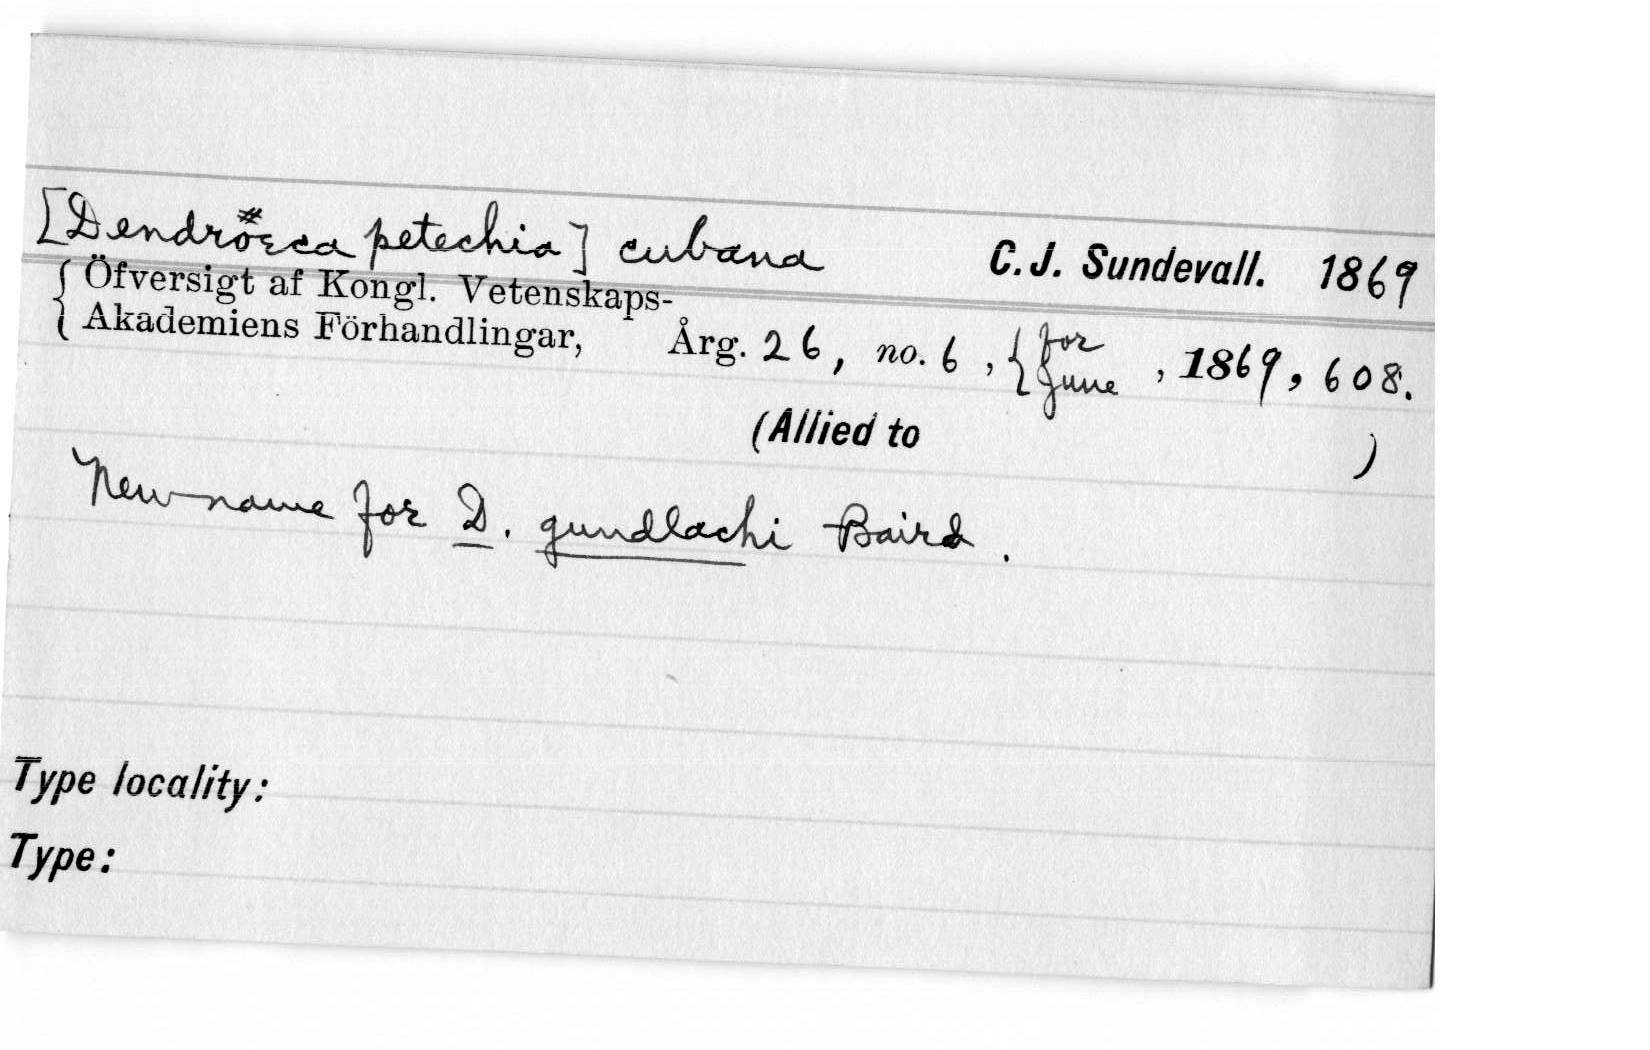 [Dendröeca petechia] cubana C. J. Sundevall. 1869
{ Öfversigt af Kongl. Vetenskaps-
Akademiens Förhandlingar, Årg. 26, no. 6, { for June, 1869, 608.
(Allied to )
New name for D. gundlachi Baird.
Type locality:
Type: